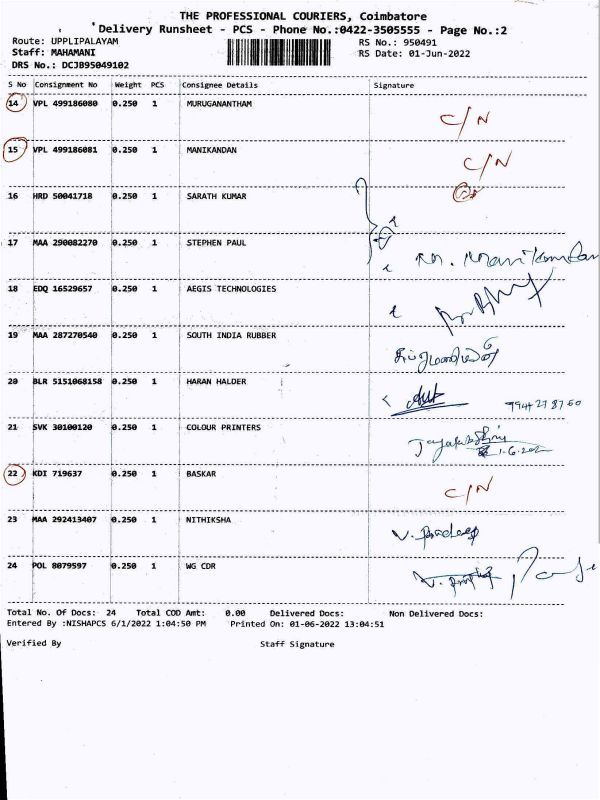 THE PROFESSIONAL COURIERS, Coimbatore
Delivery Runsheet - PCS - Phone No.:0422-3505555 - Page No.:2
Route: UPPLIPALAYAM RS No.: 950491
Staff: MAHAMANI RS Date: 01-Jun-2022
DRS No.: DCJB95049102
S No Consignment No Weight PCS Consignee Details Signature
14 VPL 499186080 0.250 1 MURUGANANTHAM C/N
15 VPL 499186081 0.250 1 MANIKANDAN C/N
16 HRD 50041718 0.250 1 SARATH KUMAR
17 MAA 290082270 0.250 1 STEPHEN PAUL
18 EDQ 16529657 0.250 1 AEGIS TECHNOLOGIES
19 MAA 287270540 0.250 1 SOUTH INDIA RUBBER
20 BLR 5151068158 0.250 1 HARAN HALDER
21 SVK 30100120 0.250 1 COLOUR PRINTERS
22 KDI 719637 0.250 1 BASKAR C/N
23 MAA 292413407 0.250 1 NITHIKSHA V. Pradeep
24 POL 8079597 0.250 1 WG CDR
Total No. Of Docs: 24 Total COD Amt: 0.00 Delivered Docs: Non Delivered Docs:
Entered By :NISHAPCS 6/1/2022 1:04:50 PM Printed On: 01-06-2022 13:04:51
Verified By Staff Signature